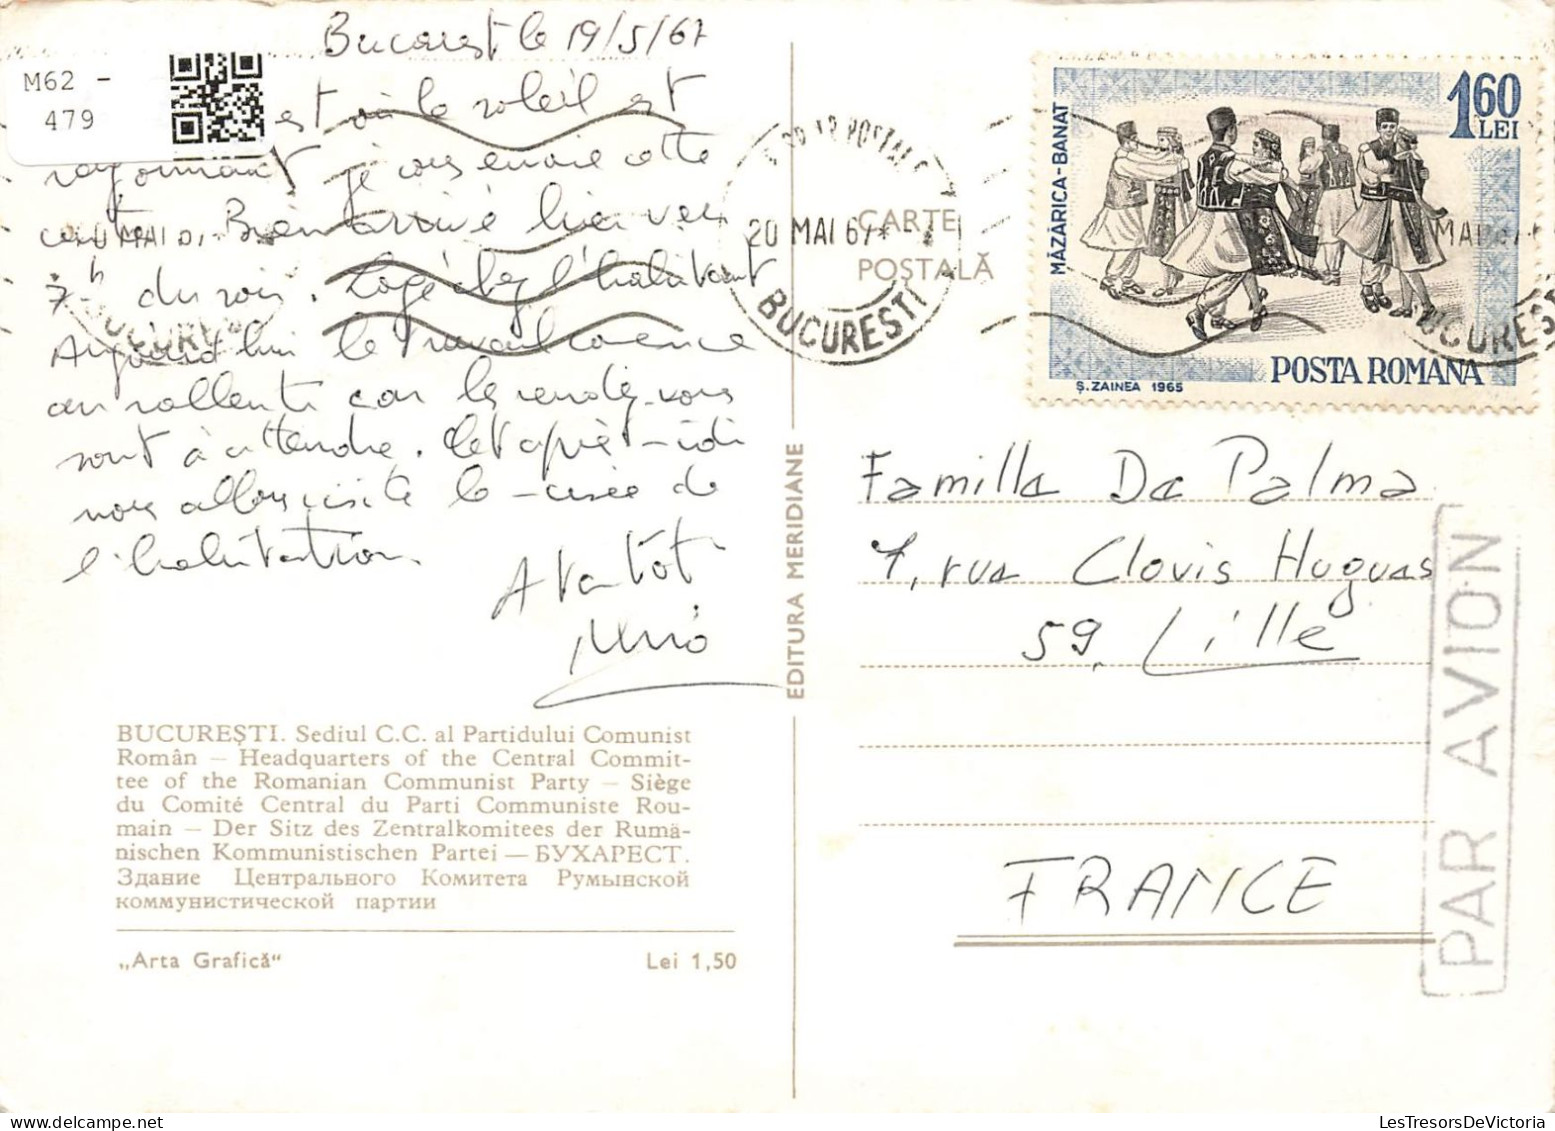 M62 -
479
Bucarest le 19/5/67
est où le soleil est
rayonnant je vous envoie cette
carte. Bien arrivé hier vers
7h du soir. Logé chez l'habitant
Aujourd'hui le travail comence
au rallenti car les rendez-vous
sont à attendre. Cet après-midi
nous allons visite le musée de
l'habitation
A bientôt
CARTE
POȘTALĂ
20 MAI 67
BUCUREȘTI
MAI
BUCUREȘTI
MAI 67
BUCUREȘTI
MĂZĂRICA-BANAT
1,60
LEI
Ș. ZAINEA 1965
POSTA ROMANA
EDITURA MERIDIANE
Famille De Palma
1, rue Clovis Hugues
59, Lille
FRANCE
PAR AVION
BUCUREȘTI. Sediul C.C. al Partidului Comunist
Român – Headquarters of the Central Commit-
tee of the Romanian Communist Party – Siège
du Comité Central du Parti Communiste Rou-
main – Der Sitz des Zentralkomitees der Rumä-
nischen Kommunistischen Partei – БУХАРЕСТ.
Здание Центрального Комитета Румынской
коммунистической партии
„Arta Grafică"
Lei 1,50
LesTresorsDeVictoria